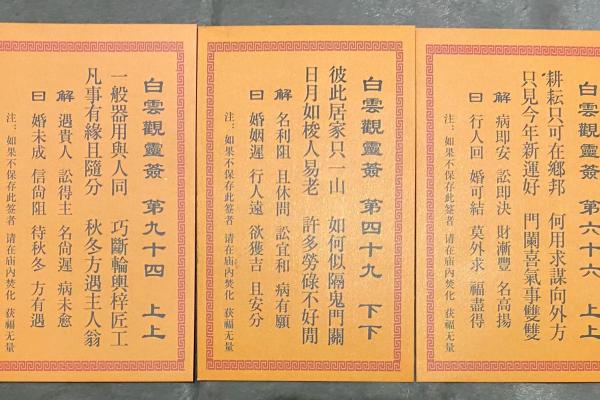 白雲觀靈簽 第九十四 上上
一般器用與人同 巧斷輪輿梓匠工
凡事有緣且隨分 秋冬方遇主人翁
解 遇貴人 訟得主 名尚遲 病未愈
曰 婚未成 信尚阻 待秋冬 方有遇
注：如果不保存此签者 请在庙内焚化 获福无量
白雲觀靈簽 第四十九 下下
彼此居家只一山 如何似隔鬼門關
日月如梭人易老 許多勞碌不好閒
解 名利阻 且休問 訟宜和 病有願
曰 婚姻遲 行人遠 欲獲吉 且安分
注：如果不保存此签者 请在庙内焚化 获福无量
白雲觀靈簽 第六十六 上上
耕耘只可在鄉邦 何用求謀向外方
只見今年新運好 門闌喜氣事雙雙
解 病即安 訟即決 財漸豐 名高揚
曰 行人回 婚可結 莫外求 福盡得
注：如果不保存此签者 请在庙内焚化 获福无量